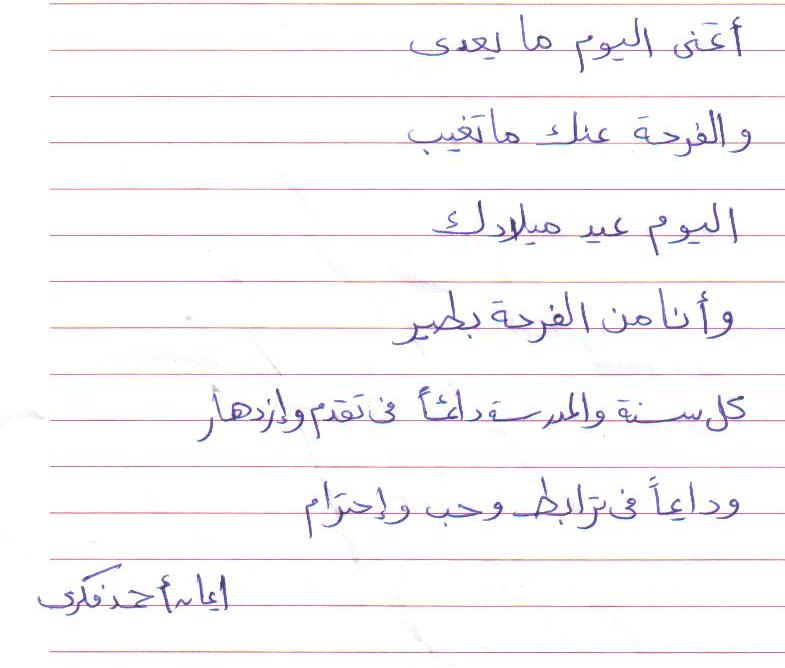 أتمنى اليوم ما يعدى
والفرحة عنك ماتغيب
اليوم عيد ميلادك
وأنا من الفرحة بطير
كل سنة والمدرسة دائماً فى تقدم وإزدهار
وداعاً فى ترابط وحب وإحترام
إيمان أحمد فكرى